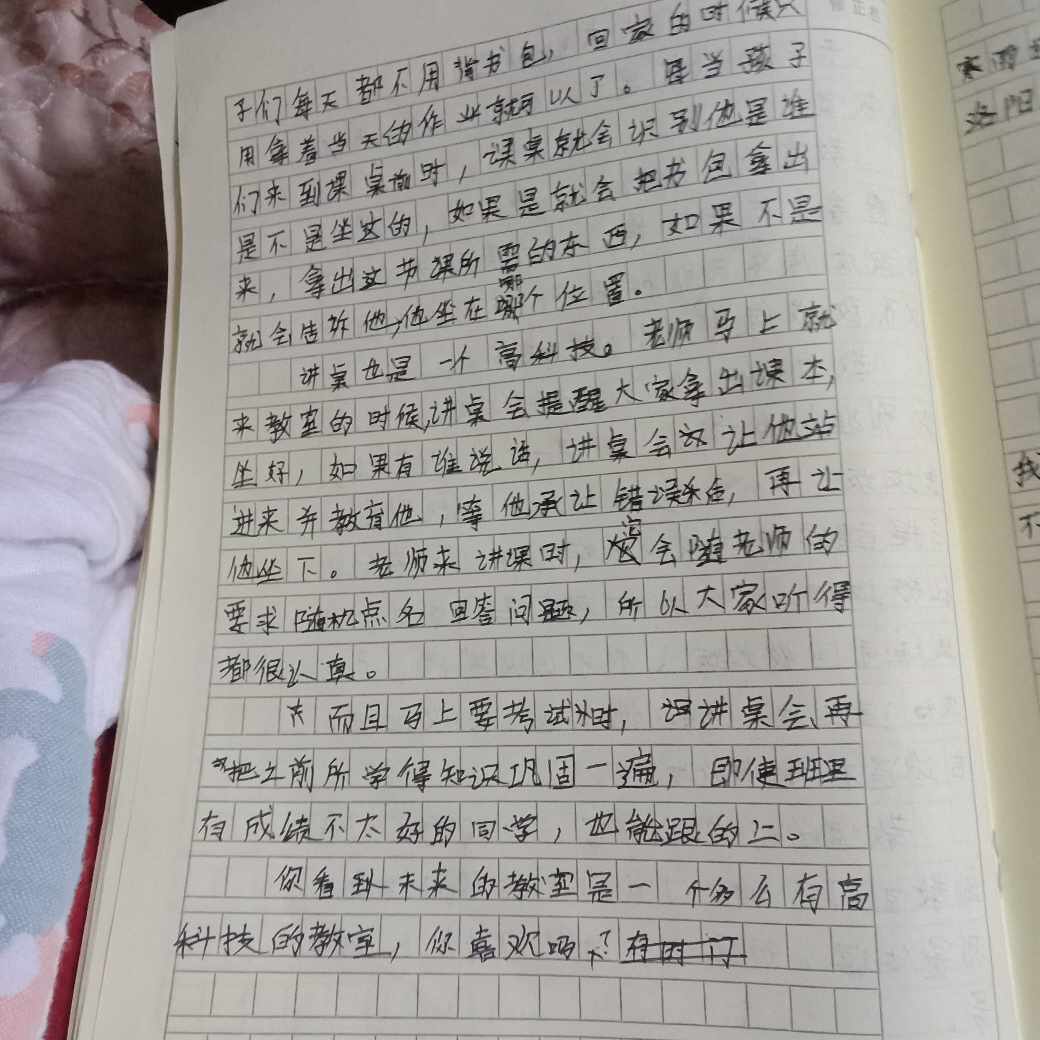 子们每天都不用背书包，回家的时候只
用拿着当天的作业就可以了。每当孩子
们来到课桌前时，课桌就会识别他是谁
是不是坐这的，如果是就会把书包拿出
来，拿出这节课所需的东西，如果不是
就会告诉他，他坐在哪个位置。
讲桌也是一个高科技。老师马上就
来教室的时候，讲桌会提醒大家拿出课本，
坐好，如果有谁说话，讲桌会让他站
进来并教育他，等他承让错误后，再让
他坐下。老师来讲课时，它会随老师的
要求随机点名回答问题，所以大家听得
都很认真。
而且马上要考试时，讲桌会再
把之前所学得知识巩固一遍，即使班里
有成绩不太好的同学，也能跟的上。
你看到未来的教室是一个多么有高
科技的教室，你喜欢吗？
寒雨
洛阳
找
不